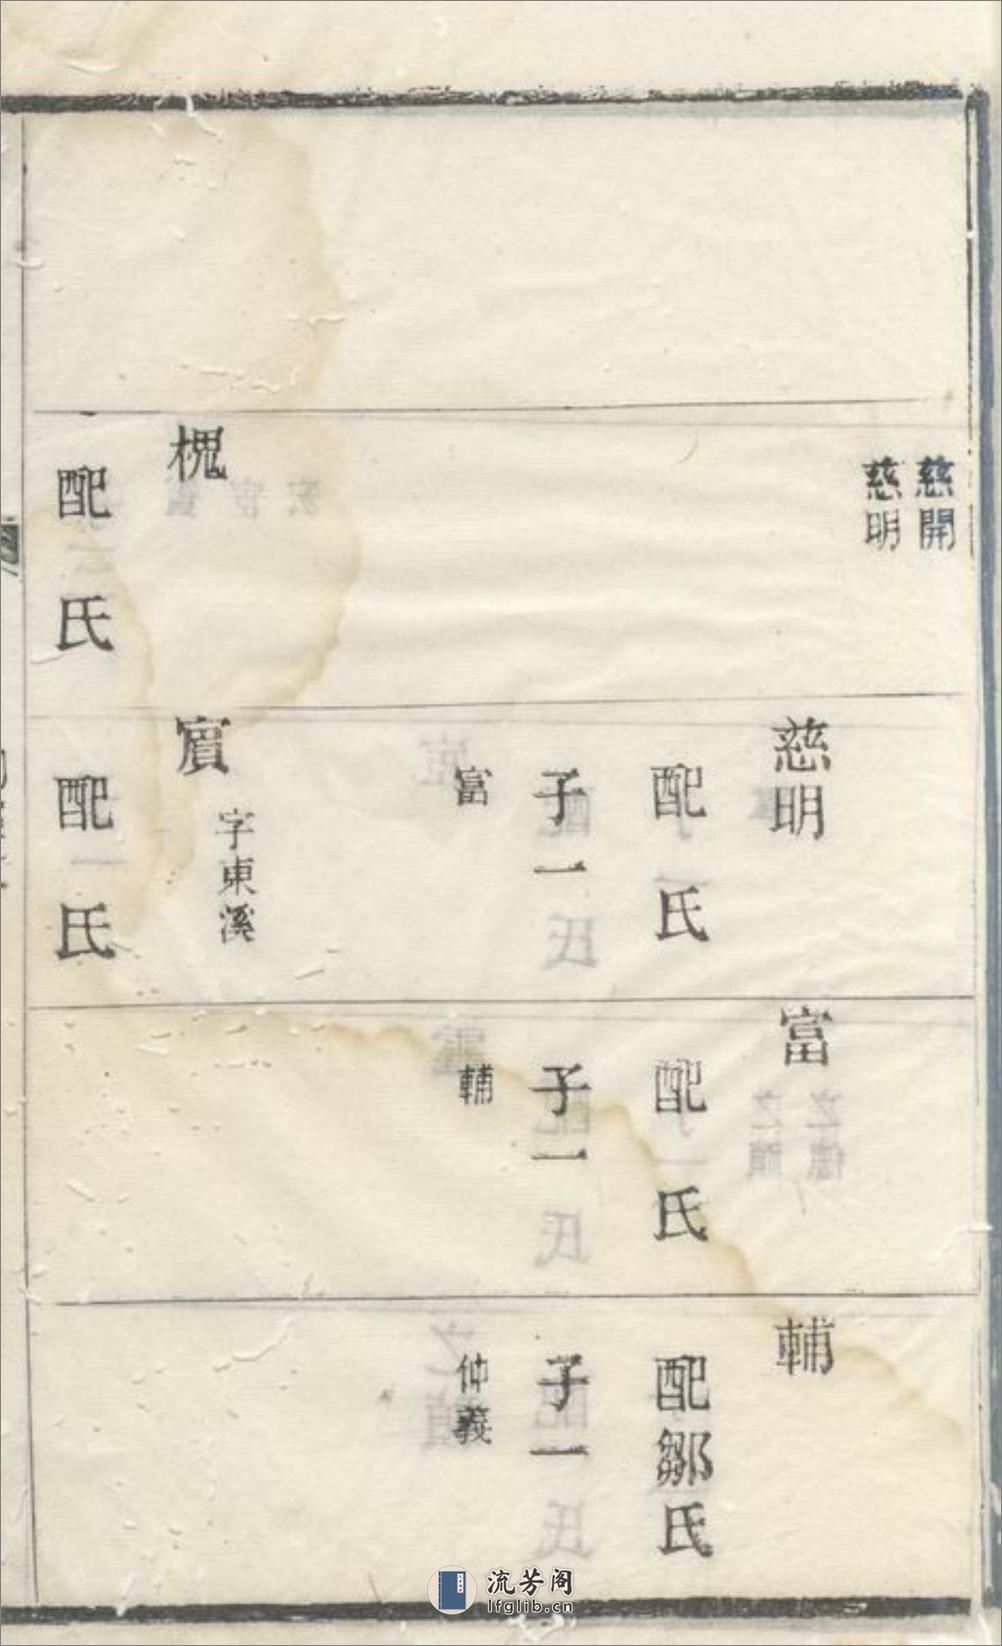 慈開
慈明
槐
配 氏
慈明
配 氏
子一
富
賔
字東溪
配 氏
富
配 氏
子一
輔
輔
配鄒氏
子一
仲義
流芳阁
lfglib.cn